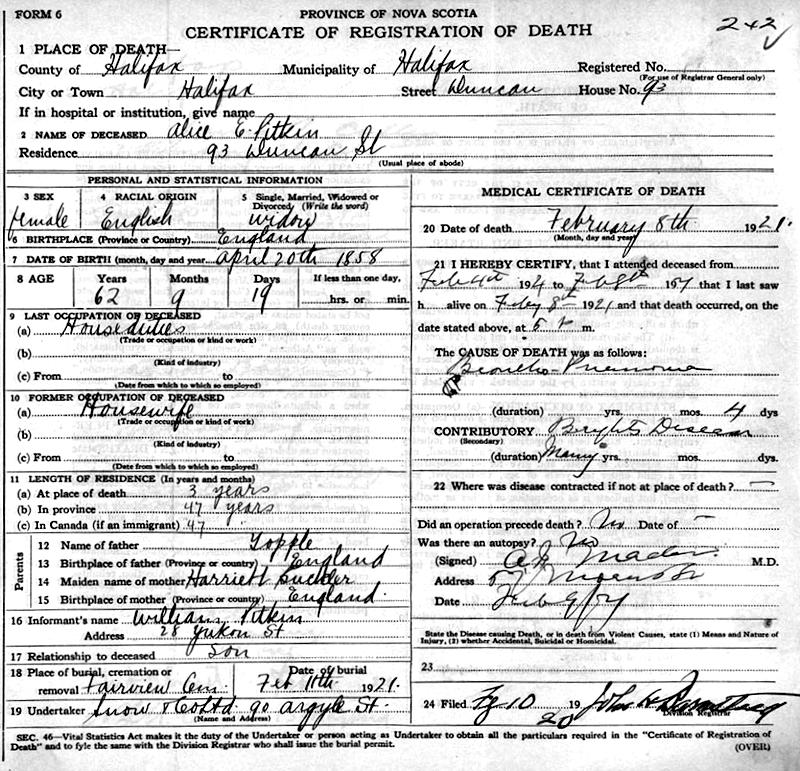 FORM 6
PROVINCE OF NOVA SCOTIA
CERTIFICATE OF REGISTRATION OF DEATH
242
1 PLACE OF DEATH—
County of Halifax Municipality of Halifax Registered No.
(For use of Registrar General only)
City or Town Halifax Street Duncan House No. 93
If in hospital or institution, give name
2 NAME OF DECEASED Alice E. Pitkin
Residence 93 Duncan St
(Usual place of abode)
PERSONAL AND STATISTICAL INFORMATION
3 SEX 4 RACIAL ORIGIN 5 Single, Married, Widowed or Divorced (Write the word)
female English widow
6 BIRTHPLACE (Province or Country) England
7 DATE OF BIRTH (month, day and year) April 20th 1858
8 AGE Years Months Days If less than one day,
62 9 19 hrs. or min.
9 LAST OCCUPATION OF DECEASED
(a) House duties
(Trade or occupation or kind or work)
(b)
(Kind of industry)
(c) From to
(Date from which to which so employed)
10 FORMER OCCUPATION OF DECEASED
(a) Housewife
(Trade or occupation or kind of work)
(b)
(Kind of industry)
(c) From to
(Date from which to which so employed)
11 LENGTH OF RESIDENCE (In years and months)
(a) At place of death 3 years
(b) In province 47 years
(c) In Canada (if an immigrant) 47
Parents
12 Name of father Topple
13 Birthplace of father (Province or country) England
14 Maiden name of mother Harriett
15 Birthplace of mother (Province or country) England
16 Informant's name William Pitkin
Address 28 Yukon St
17 Relationship to deceased Son
18 Place of burial, cremation or removal Fairview Cem Date of burial Feb 11th 1921.
19 Undertaker Snow & Co Ltd 90 Argyle St.
(Name and Address)
MEDICAL CERTIFICATE OF DEATH
20 Date of death February 8th 1921.
(Month, day and year)
21 I HEREBY CERTIFY, that I attended deceased from
Feb 4th 192 to Feb 8th 19 that I last saw
h alive on Feby 8th 1921 and that death occurred, on
the date stated above, at 5 P m.
The CAUSE OF DEATH was as follows:
Broncho-Pneumonia
(duration) yrs. mos. 4 dys
CONTRIBUTORY Brights Disease
(Secondary)
(duration) Many yrs. mos. dys.
22 Where was disease contracted if not at place of death? —
Did an operation precede death? No Date of —
Was there an autopsy? No
(Signed) M.D.
Address 57
Date Feb 9
State the Disease causing Death, or in death from Violent Causes, state (1) Means and Nature of Injury, (2) whether Accidental, Suicidal or Homicidal.
23
24 Filed 10 19 20 John
Division Registrar
SEC. 46—Vital Statistics Act makes it the duty of the Undertaker or person acting as Undertaker to obtain all the particulars required in the "Certificate of Registration of Death" and to fyle the same with the Division Registrar who shall issue the burial permit.
(OVER)